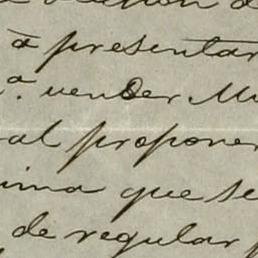 á presentar
vender
al proponer
que se
de regular